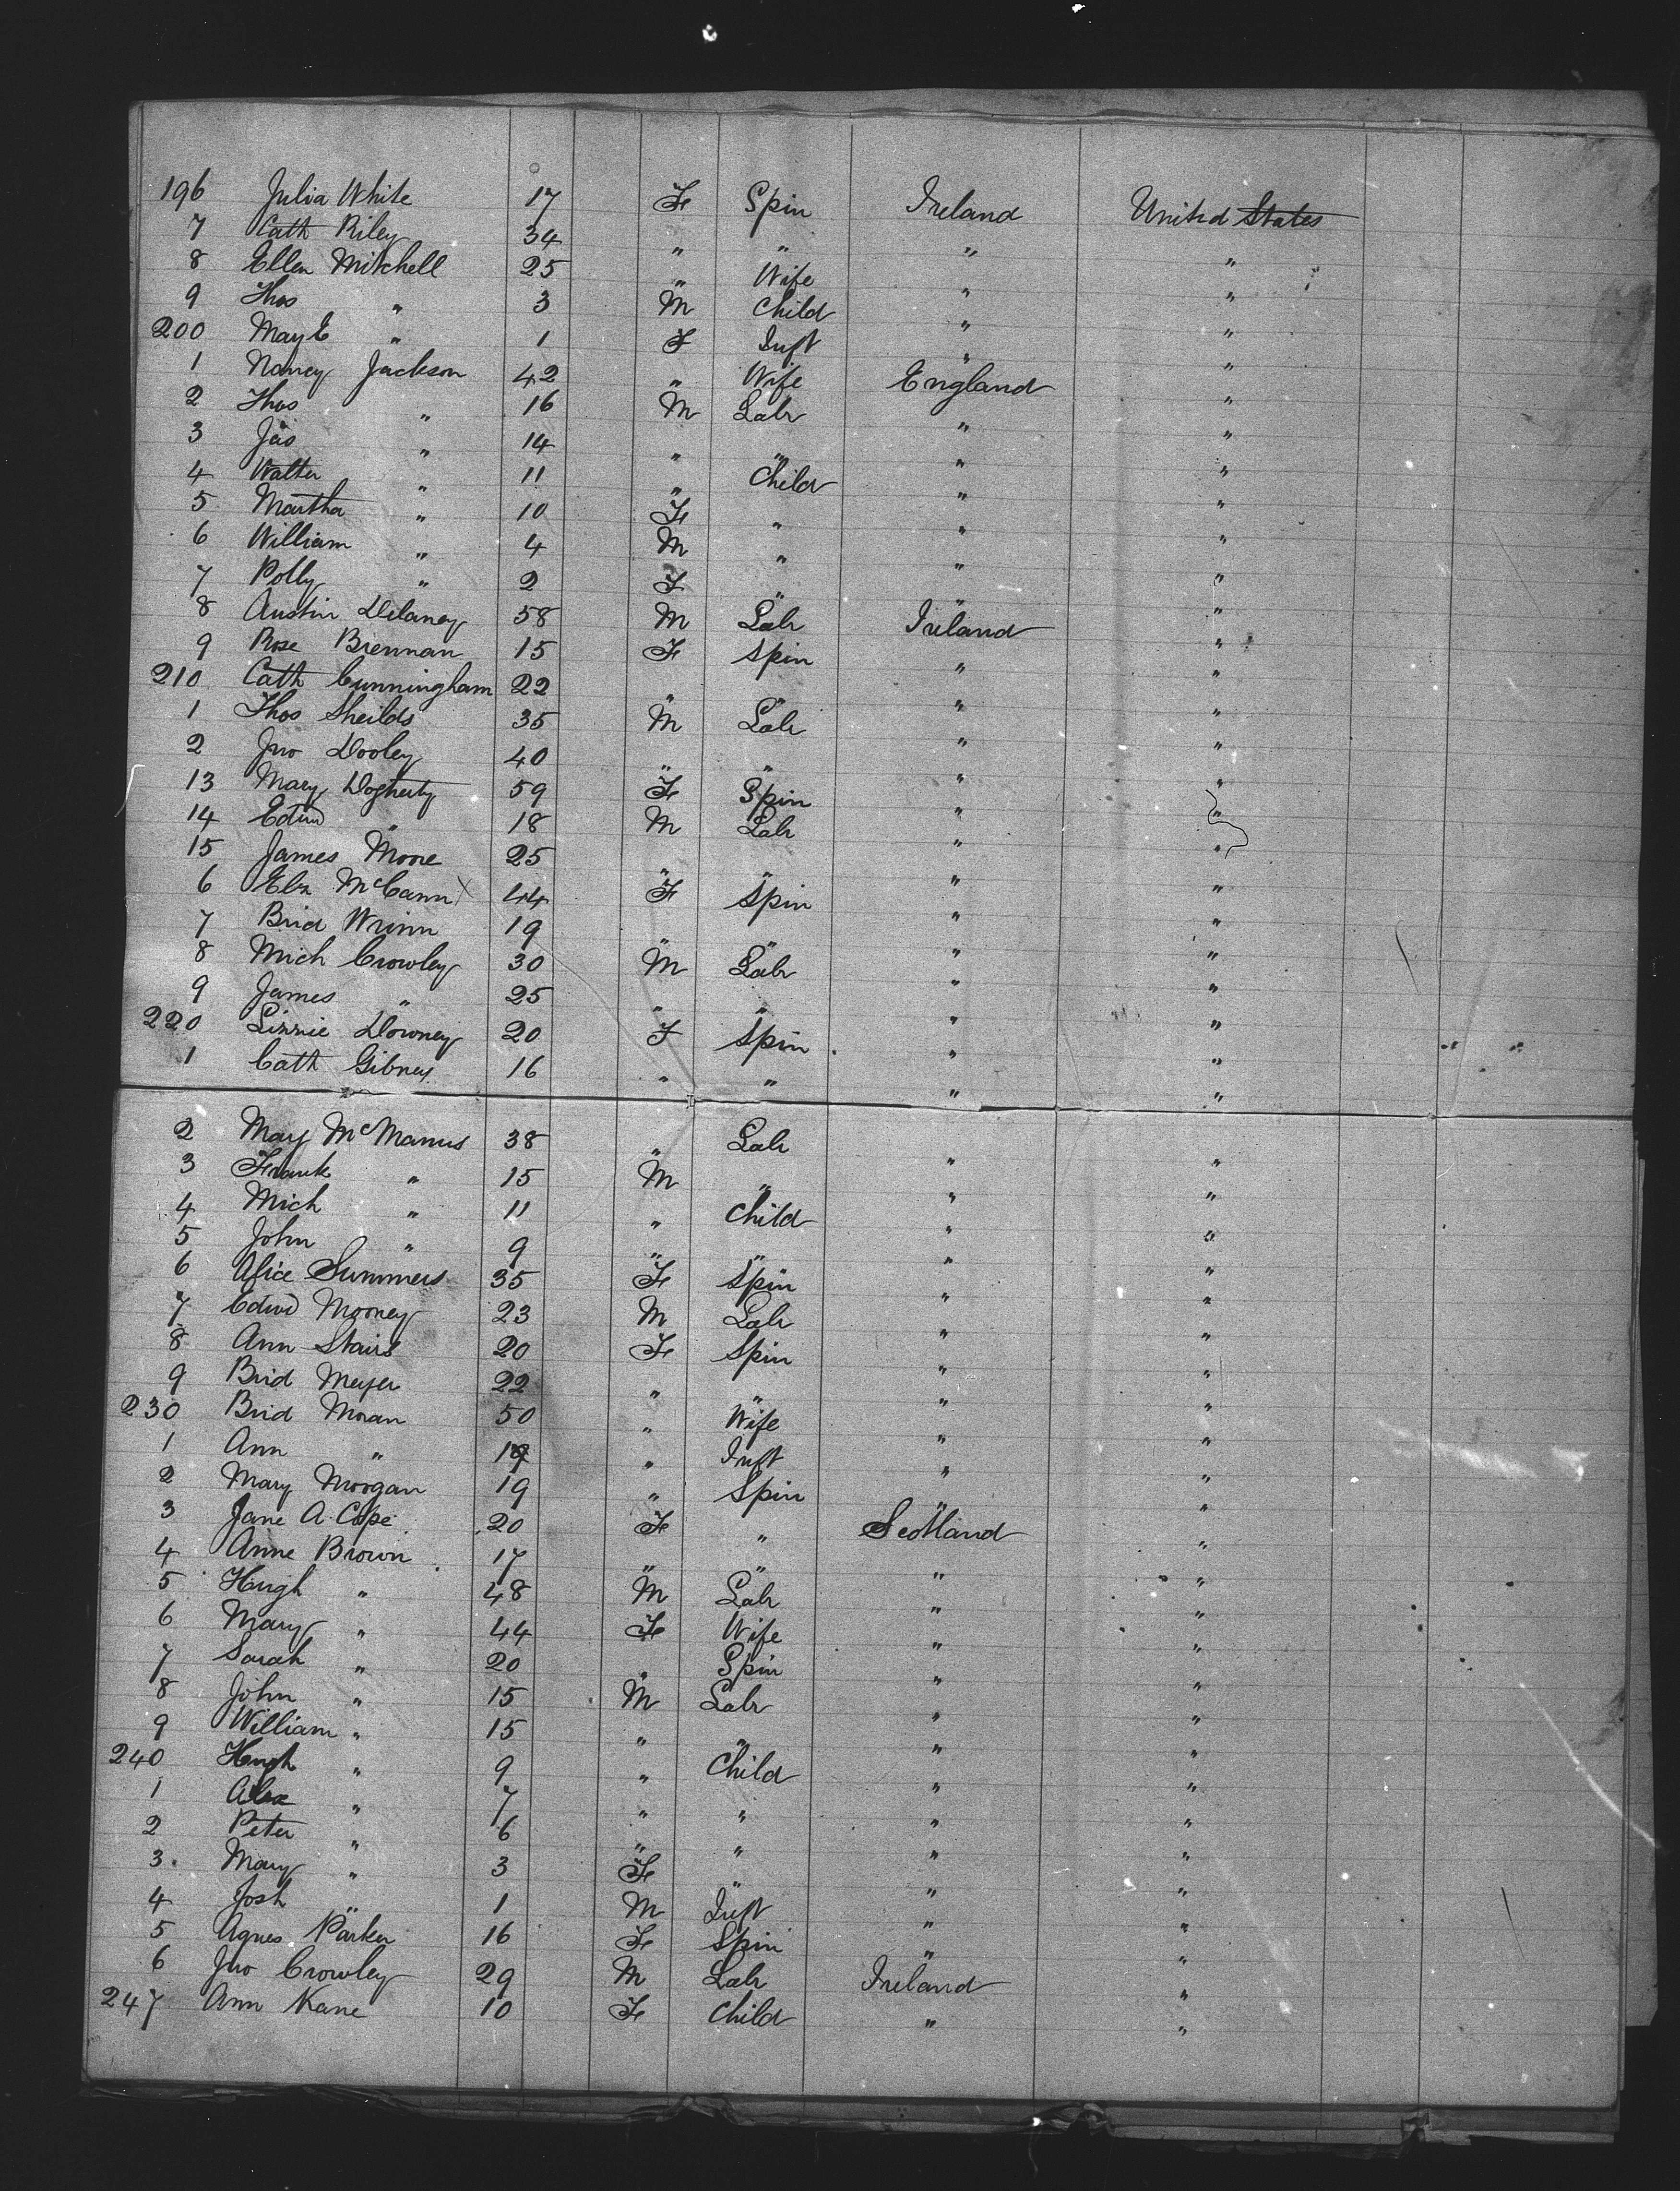 196 Julia White 17 Fe Spin Ireland United States
7 Cath Riley 34 " " " "
8 Ellen Mitchell 25 " Wife " "
9 Thos " 3 M Child " "
200 May E " 1 F Inft " "
1 Nancy Jackson 42 " Wife England "
2 Thos " 16 M Labr " "
3 Jas " 14 " " " "
4 Walter " 11 " Child " "
5 Martha " 10 Fe " " "
6 William " 4 M " " "
7 Polly " 2 F " " "
8 Austin Delaney 58 M Labr Ireland "
9 Rose Brennan 15 Fe Spin " "
210 Cath Cunningham 22 " " " "
1 Thos Sheilds 35 M Labr " "
2 Jno Dooley 40 " " " "
13 Mary Dogherty 59 Fe Spin " "
14 Edwd " 18 M Labr " "
15 James Moore 25 " " " "
6 Elza McCann X 44 Fe Spin " "
7 Brid Wrinn 19 " " " "
8 Mich Crowley 30 M Labr " "
9 James " 25 " " " "
220 Lizzie Downey 20 F Spin " "
1 Cath Gibney 16 " " " "
2 Mary McManus 38 " Labr " "
3 Frank " 15 M " " "
4 Mich " 11 " Child " "
5 John " 9 " " " "
6 Alice Summers 35 Fe Spin " "
7 Edwd Mooney 23 M Labr " "
8 Ann Stairs 20 Fe Spin " "
9 Brid Meyer 22 " " " "
230 Brid Moran 50 " Wife " "
1 Ann " " Inft " "
2 Mary Morgan 19 " Spin " "
3 Jane A. Cope 20 Fe " Scotland "
4 Anne Brown 17 " " " "
5 Hugh " 48 M Labr " "
6 Mary " 44 Fe Wife " "
7 Sarah " 20 " Spin " "
8 John " 15 M Labr " "
9 William " 15 " " " "
240 Hugh " 9 " Child " "
1 Alex " 7 " " " "
2 Peter " 6 " " " "
3 Mary " 3 Fe " " "
4 Josh " 1 M Inft " "
5 Agnes Parker 16 Fe Spin " "
6 Jno Crowley 29 M Labr Ireland "
247 Ann Kane 10 Fe Child " "